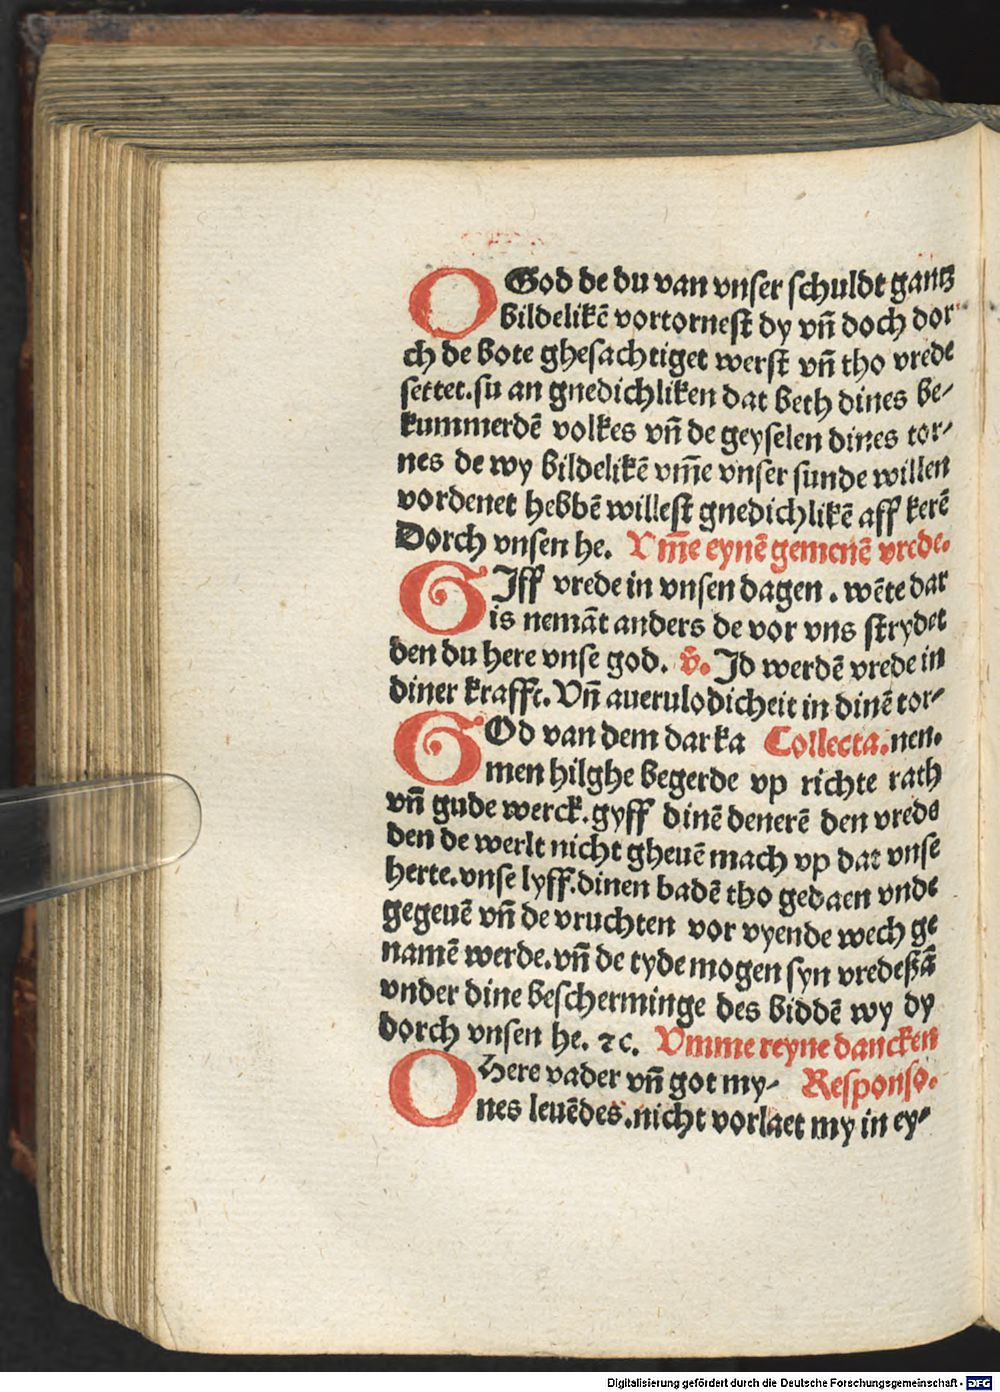 O God de du van vnser schuldt gantz
bildelikē vortornest dy vñ doch dor
ch de bote ghesachtiget werst vñ tho vrede
settet. su an gnedichliken dat beth dines be-
kummerdē volkes vñ de geyselen dines tor-
nes de wy bildelikē vm̄e vnser sunde willen
vordenet hebbē willest gnedichlikē aff kerē
Dorch vnsen he. Vm̄e eynē gemenē vrede.
GIff vrede in vnsen dagen. wēte dar
is nemāt anders de vor vns strydet
den du here vnse god. v̄. Id werdē vrede in
diner krafft. Vñ auerulodicheit in dinē tor-
GOd van dem dar ka Collecta. nen.
men hilghe begerde vp richte rath
vñ gude werck. gyff dinē denerē den vrede
den de werlt nicht gheuē mach vp dat vnse
herte. vnse lyff. dinen badē tho gedaen vnde
gegeuē vñ de vruchten vor vyende wech ge
namē werde. vñ de tyde mogen syn vredeßā
vnder dine bescherminge des biddē wy dy
dorch vnsen he. ⁊c. Vmme reyne dancken
O Here vader vñ got my- Responso.
nes leuēdes. nicht vorlaet my in ey-
Digitalisierung gefördert durch die Deutsche Forschungsgemeinschaft - DFG